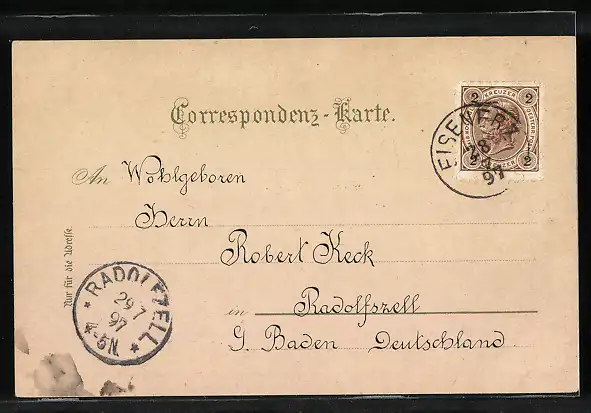 Correspondenz-Karte.
2 KREUZER 2
2 2
EISENERZ
28
97
An Wohlgeboren
Herrn
Robert Keck
in Radolfszell
G. Baden Deutschland
Nur für die Adresse.
* RADOLFZELL *
29 7
97
5-6N